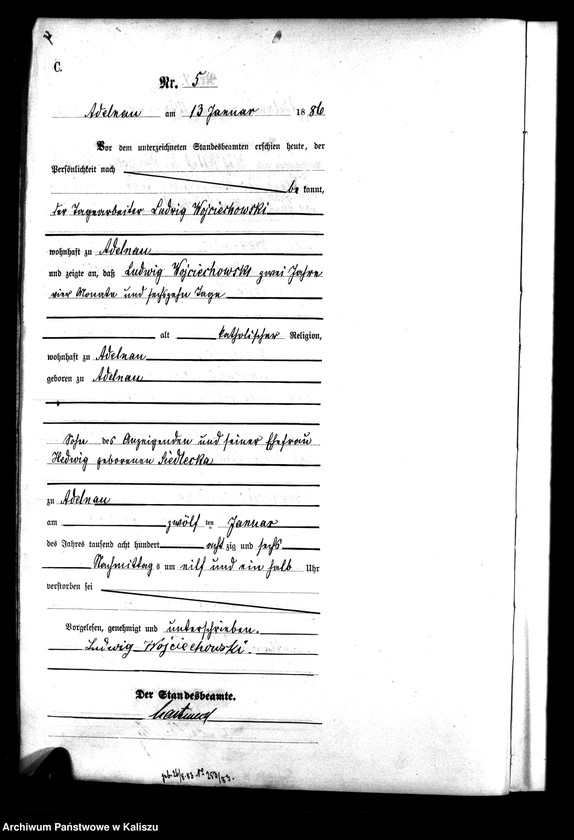 C.
Nr. 5
Adelnau am 13 Januar 1886
Vor dem unterzeichneten Standesbeamten erschien heute, der
Persönlichkeit nach
be kannt,
der Tagearbeiter Ludwig Wojciechowski
wohnhaft zu Adelnau
und zeigte an, daß Ludwig Wojciechowski zwei Jahre
vier Monate und sechszehn Tage
alt katholischer Religion,
wohnhaft zu Adelnau
geboren zu Adelnau
Sohn des Anzeigenden und seiner Ehefrau
Hedwig geborenen Siedlecka
zu Adelnau
am zwölf ten Januar
des Jahres tausend acht hundert acht zig und sechs
Nachmittag s um eilf und ein halb Uhr
verstorben sei
Vorgelesen, genehmigt und unterschrieben.
Ludwig Wojciechowski.
Der Standesbeamte.
Archiwum Państwowe w Kaliszu